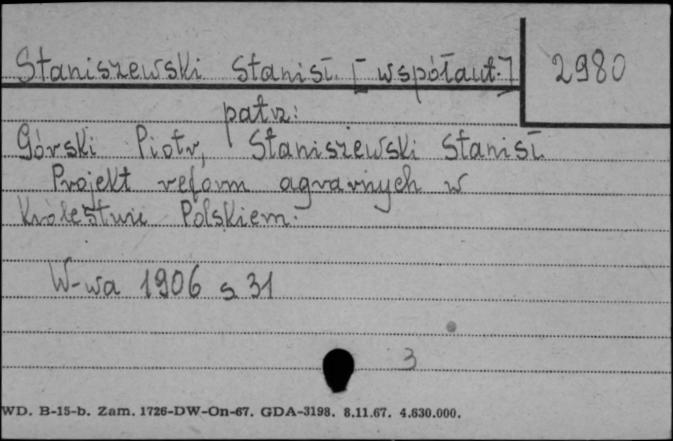 Staniszewski Stanisł. [współaut.] 2980
patrz:
Górski Piotr, Staniszewski Stanisł.
Projekt reform agrarnych w
Królestwie Polskiem.
W-wa 1906 s. 31
3
WD. B-15-b. Zam. 1726-DW-On-67. GDA-3198. 8.11.67. 4.630.000.